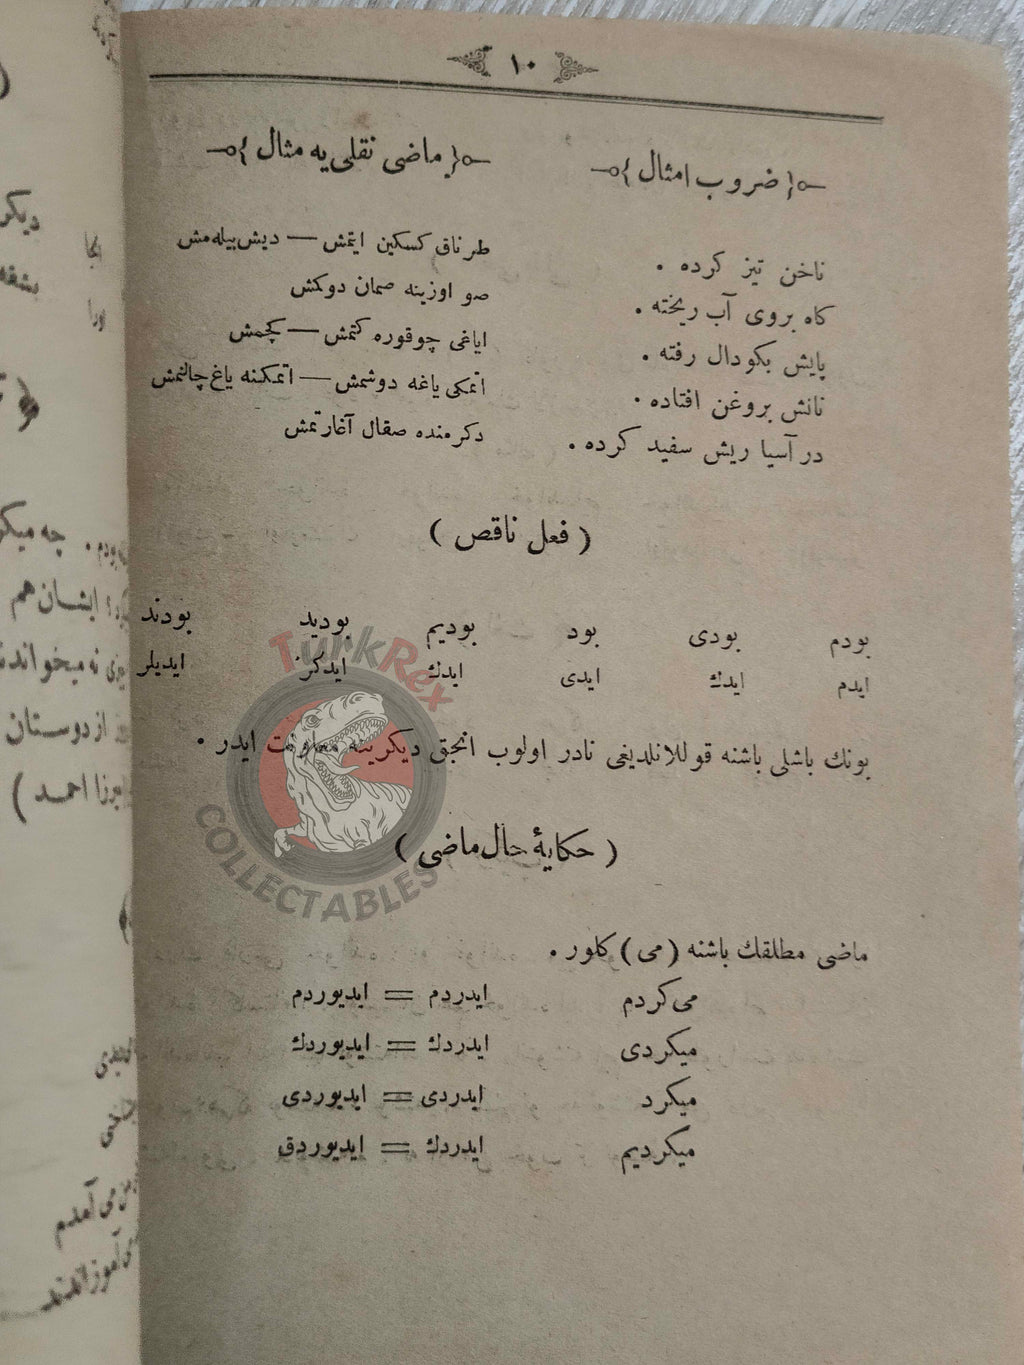 ١٠
﴿ ضروب امثال ﴾
﴿ ماضی نقلی یه مثال ﴾
ناخن تیز کرده .
طرناق کسکین ایتمش — دیش بیله‌مش
کاه بروی آب ریخته .
صو اوزینه صمان دوکمش
پایش بکودال رفته .
ایاغی چوقوره کتمش — کچمش
نانش بروغن افتاده .
اتمکی یاغه دوشمش — اتمکینه یاغ چالنمش
در آسیا ریش سفید کرده .
دکرمنده صقال آغارتمش
( فعل ناقص )
بودم بودی بود بودیم بودید بودند
ایدم ایدك ایدی ایدك ایدکز ایدیلر
بونك باشلی باشنه قوللانلدیغی نادر اولوب انجق دیکرینه معاونت ایدر .
( حکایهٔ حال ماضی )
ماضی مطلقك باشنه ( می ) کلور .
می‌کردم ایدردم = ایدیوردم
میکردی ایدردك = ایدیوردك
میکرد ایدردی = ایدیوردی
میکردیم ایدردك = ایدیوردق
TurkRex
COLLECTABLES
دیکر
چه میکر
ایشان هم
نه میخواند
از دوستان
میرزا احمد )
می آمدم